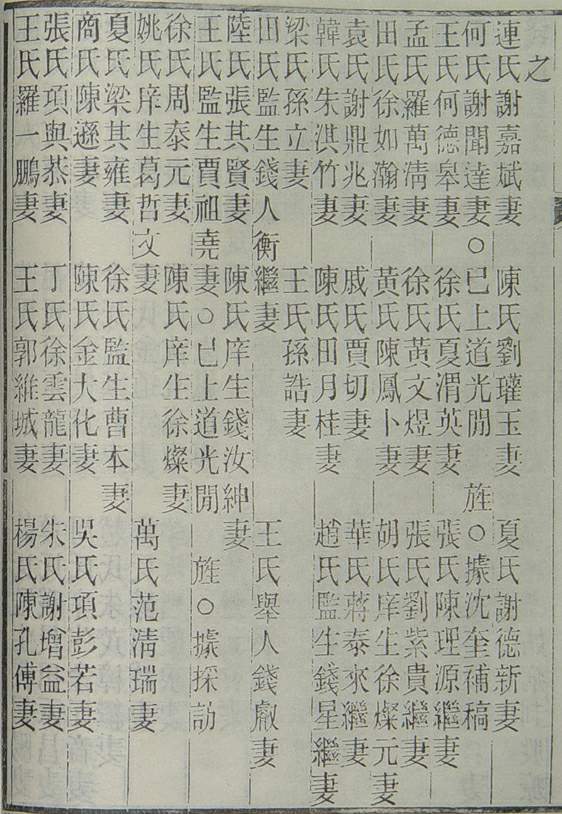 之
連氏謝嘉斌妻　陳氏劉瓘玉妻　夏氏謝德新妻
何氏謝聞達妻○已上道光閒　旌○據沈奎補稿
王氏何德皋妻　徐氏夏渭英妻　張氏陳理源繼妻
孟氏羅萬淸妻　徐氏黃文煜妻　張氏劉紫貴繼妻
田氏徐如瀚妻　黃氏陳鳳卜妻　胡氏庠生徐燦元妻
袁氏謝鼎兆妻　戚氏賈切妻　華氏蔣泰來繼妻
韓氏朱淇竹妻　陳氏田月桂妻　趙氏監生錢星繼妻
梁氏孫立妻　王氏孫誥妻
田氏監生錢人衡繼妻　王氏舉人錢叡妻
陸氏張其賢妻　陳氏庠生錢汝紳妻
王氏監生賈祖堯妻○已上道光閒　旌○據採訪
徐氏周泰元妻　陳氏庠生徐燦妻
姚氏庠生葛哲文妻　萬氏范淸瑞妻
夏氏梁其雍妻　徐氏監生曹本妻
商氏陳遜妻　陳氏金大化妻　吳氏項彭若妻
張氏項與恭妻　丁氏徐雲龍妻　朱氏謝增益妻
王氏羅一鵬妻　王氏郭維城妻　楊氏陳孔傳妻